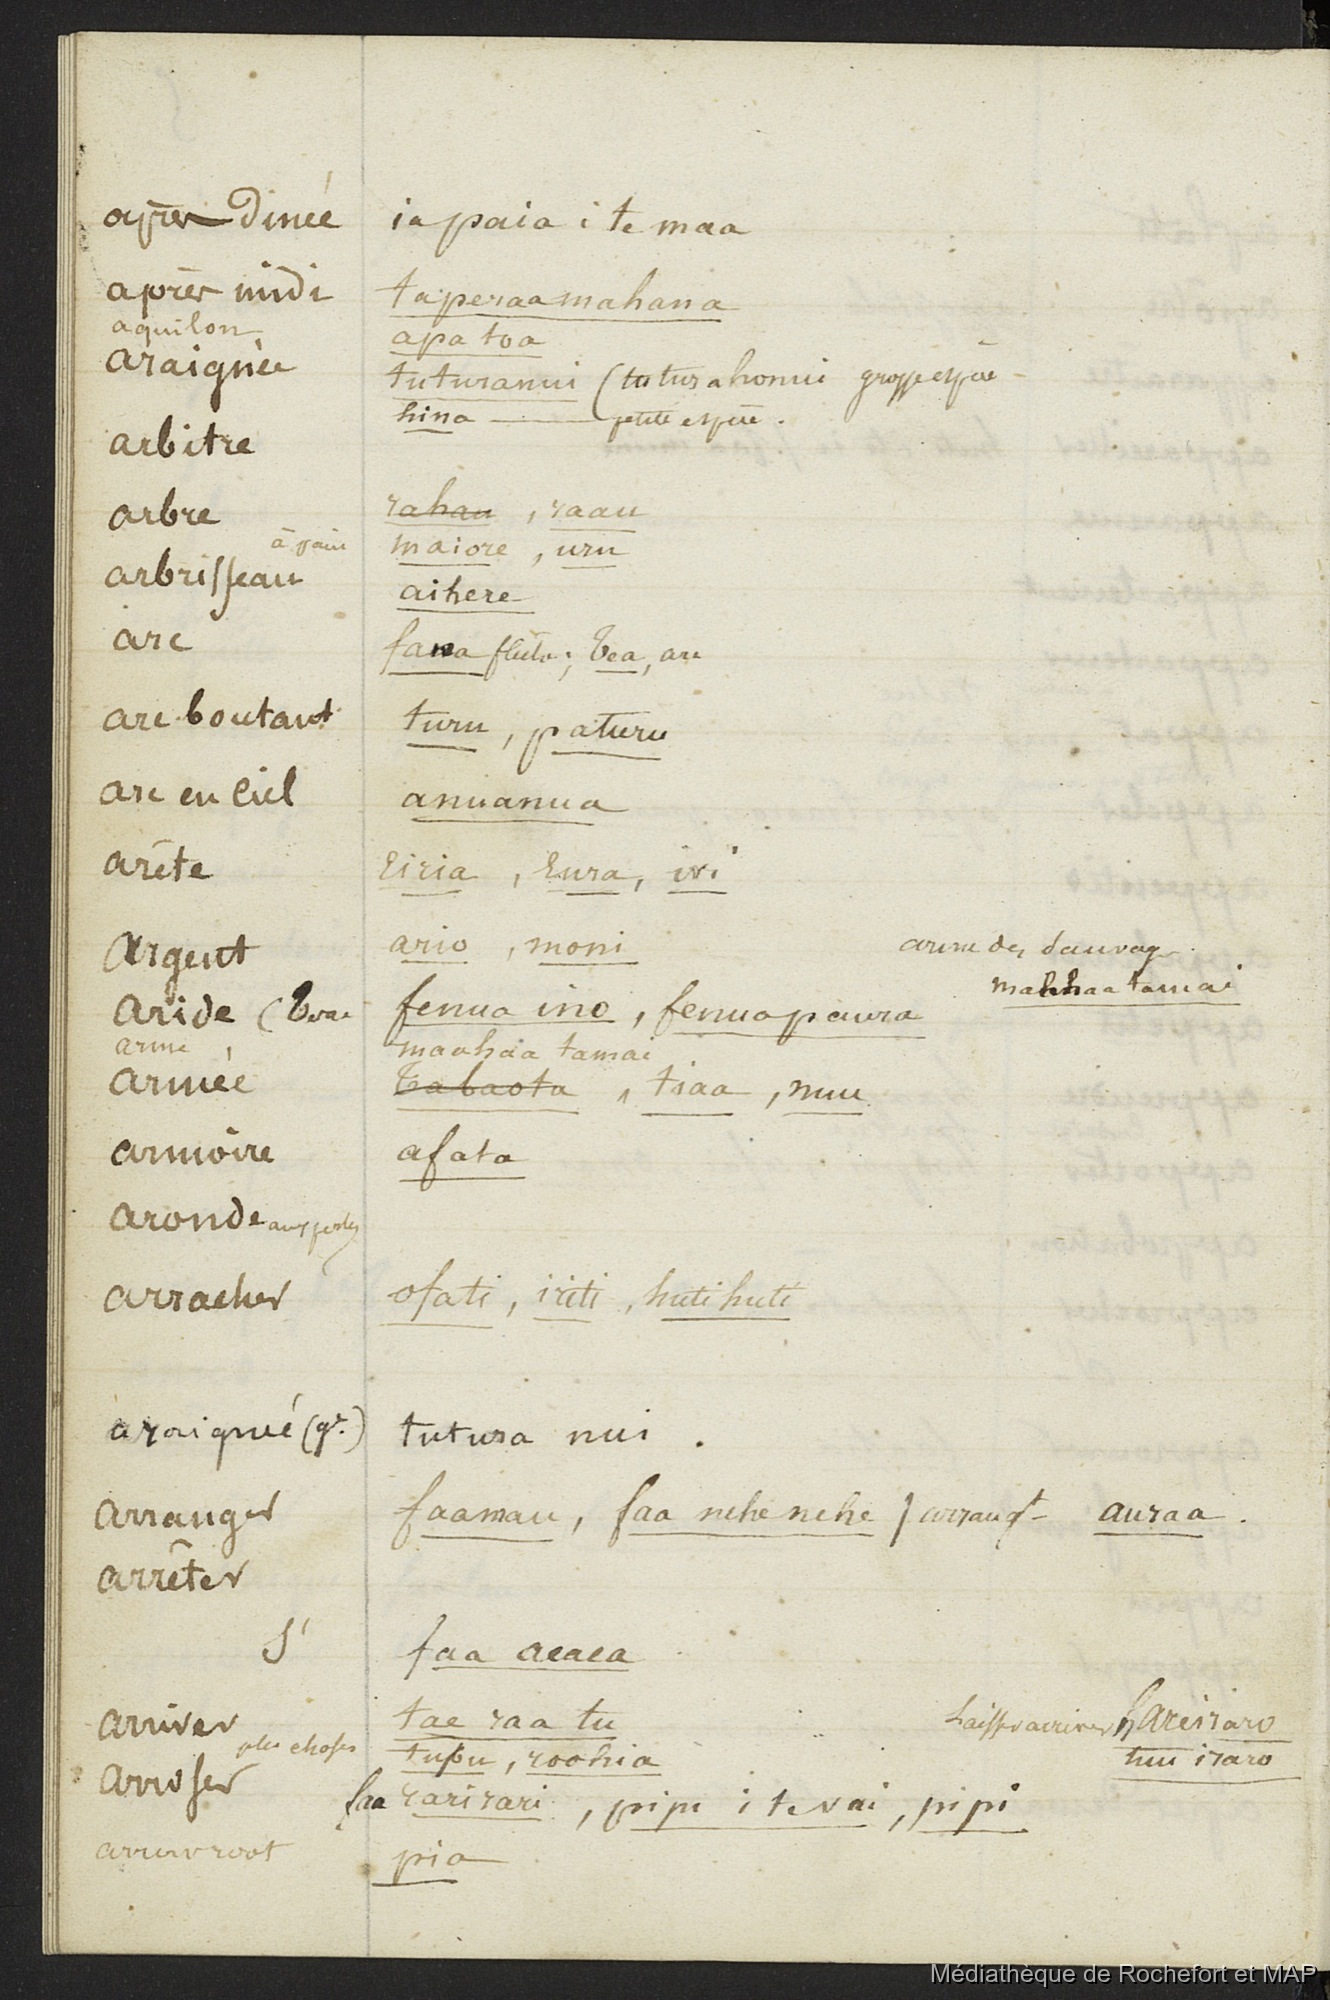 après dinée ia paia i te maa
après midi taperaa mahana
aquilon apa toa
araignée tuturanui (tuturahonui grosse espèce
hina petite espèce.
arbitre
arbre rahau, raau
à pain maiore, uru
arbrisseau aihere
arc fana flèche; tea, arc
arc boutant turu, paturu
arc en ciel anuanua
arête eiria, eura, ivi
argent ario, moni
arme des sauvag
mahhaa tamai
aride (terre fenua ino, fenua paura
arme maahaa tamai
armée tabaota, tiaa, nuu
armoire afata
aronde aux perles
arracher ofati, iriti, hutihuti
araignée (gr.) tutura nui.
arranger faamau, faa nehenehe / arrangt auraa.
arrêter
S' faa aeaea
arriver tae raa tu
laisser arriver hareiraro
plus choses tupu, roohia
huu iraro
arroser faa rarirari, pipi i te vai, pipi
arrowroot pia
Médiathèque de Rochefort et MAP